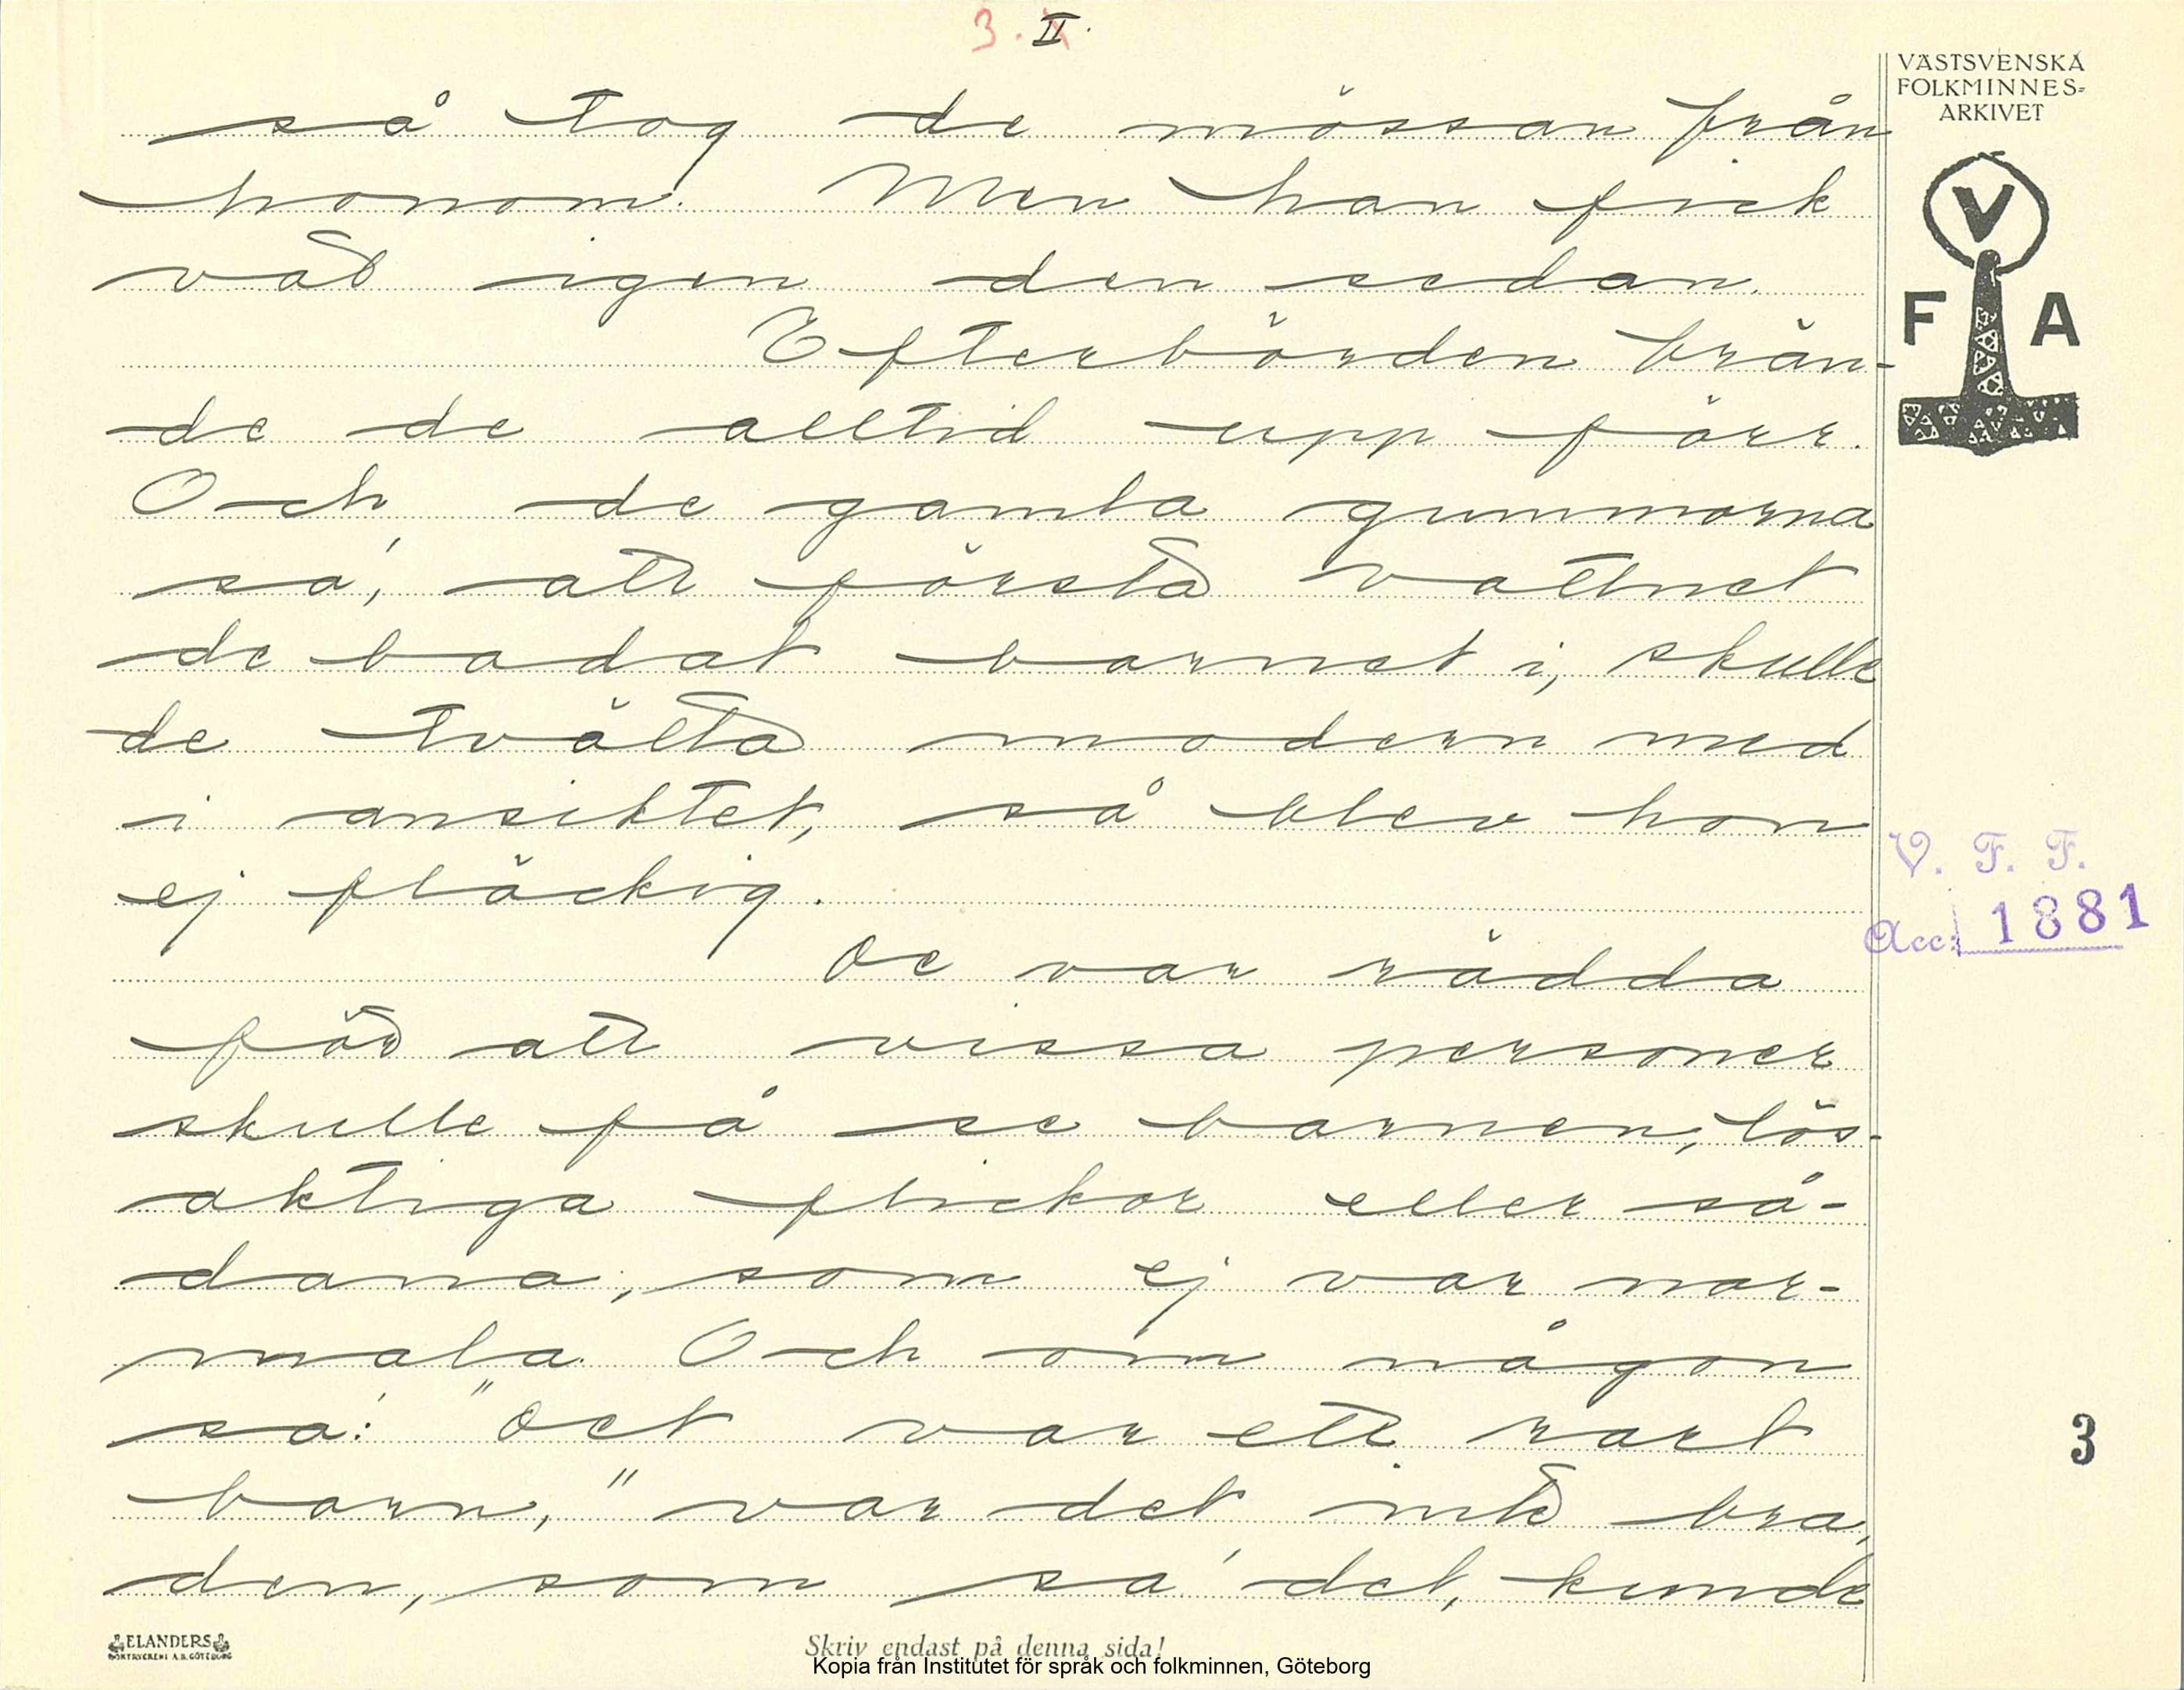 3. II.
VÄSTSVENSKA
FOLKMINNES-
ARKIVET
V
F A
så tog de mössan från
honom. Men han fick
väl igen den sedan.
Efterbörden brän-
de de alltid upp förr.
Och de gamla gummorna
sa', att första vattnet
de badat barnet i, skulle
de tvätta modern med
i ansiktet, så blev hon
ej fläckig.
De var rädda
för att vissa personer
skulle få se barnen, lös-
aktiga flickor eller så-
dana, som ej var nor-
mala. Och om någon
sa': "Det var ett rart
barn," var det inte bra,
den, som sa' det, kunde
V. F. F.
Acc: 1881
3
ELANDERS
BOKTRYCKERI A.B. GÖTEBORG
Skriv endast på denna sida!
Kopia från Institutet för språk och folkminnen, Göteborg